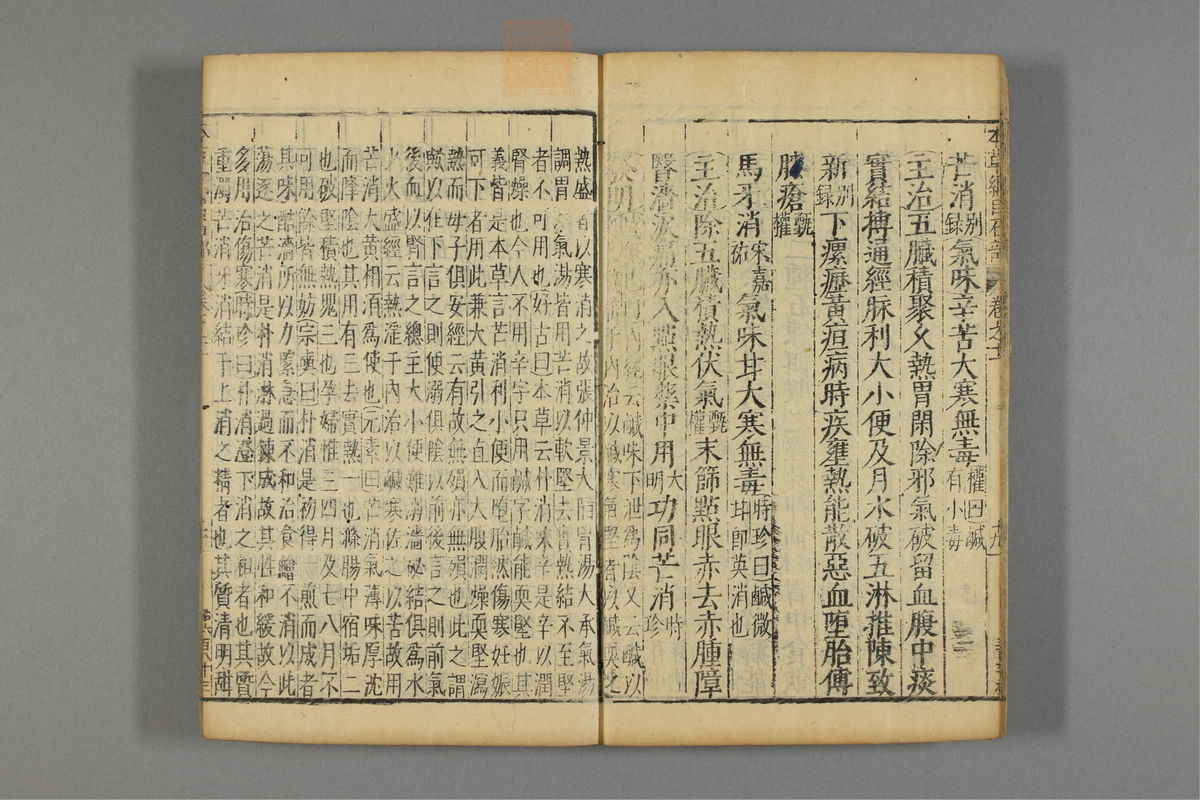 芒消別錄氣味辛苦大寒無毒權曰鹹有小毒
主治五臟積聚久熱胃閉除邪氣破留血腹中痰
實結搏通經脉利大小便及月水破五淋推陳致
新別錄下瘰癧黃疸病時疾壅熱能散惡血墮胎傅
瘡甄權
馬牙消宋嘉祐氣味甘大寒無毒時珍曰鹹微甘即英消也
主治除五臟積熱伏氣甄權末篩點眼赤去赤腫障
亦入點眼藥中用大明功同芒消時珍
發明內經云鹹味下泄為陰又云鹹以
內治以鹹寒氣堅者以鹹耎之
熱盛者以寒消之故張仲景大陷胷湯大承氣湯
調胃承氣湯皆用芒消以軟堅去實熱結不至堅
者不可用也好古曰本草云朴消味辛是辛以潤
腎燥也今人不用辛字只用鹹字鹹能耎堅也其
義皆是本草言芒消利小便而墮胎然傷寒妊娠
可下者用此兼大黃引之直入大腸潤燥耎堅瀉
熱而母子俱安經云有故無殞亦無殞也此之謂
歟以在下言之則便溺俱陰以前後言之則前氣
後血以腎言之總主大小便難溺澁秘結俱為水
少火盛經云熱淫于內治以鹹寒佐之以苦故用
芒消大黃相須為使也元素曰芒消氣薄味厚沈
而降陰也其用有三去實熱一也滌腸中宿垢二
也破堅積熱塊三也孕婦惟三四月及七八月不
可用餘皆無妨宗奭曰朴消是初得一煎而成者
其味酷澁所以力緊急而不和治食鱠不消以此
蕩逐之芒消是朴消淋過煉成故其性和緩故今
多用治傷寒時珍曰朴消澄下消之粗者也其質
重濁芒消牙消結于上消之精者也其質清明甜